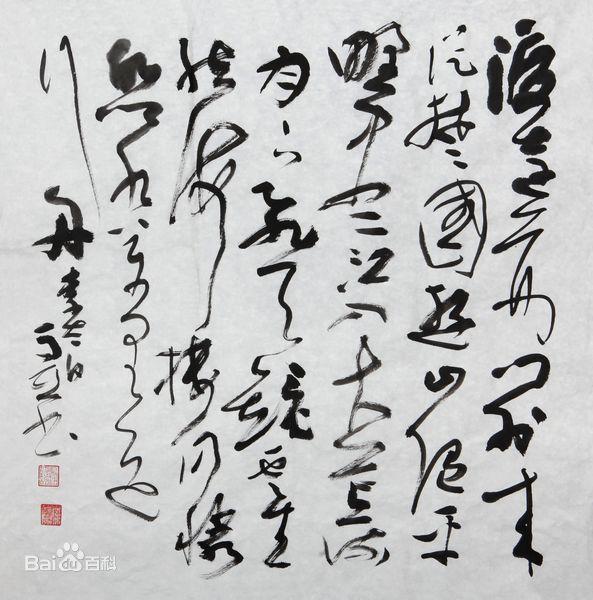 渡远荆门外来
从楚国游山随平
野尽江入大荒流
月下飞天镜云生
结海楼仍怜
故乡水万里送
行舟
李太白
书
Bai百科